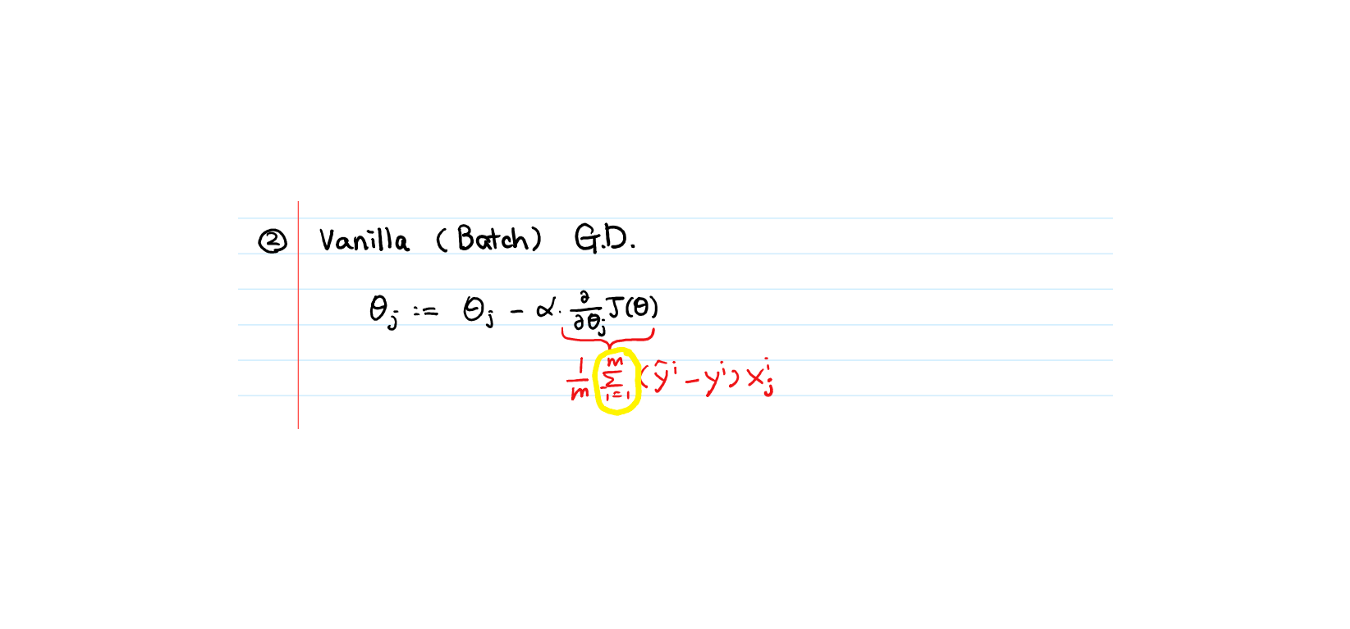 ② Vanilla (Batch) G.D.
θⱼ := θⱼ - α · ∂/∂θⱼ J(θ)
1/m Σᵢ₌₁ᵐ (ŷⁱ - yⁱ) xⱼⁱ